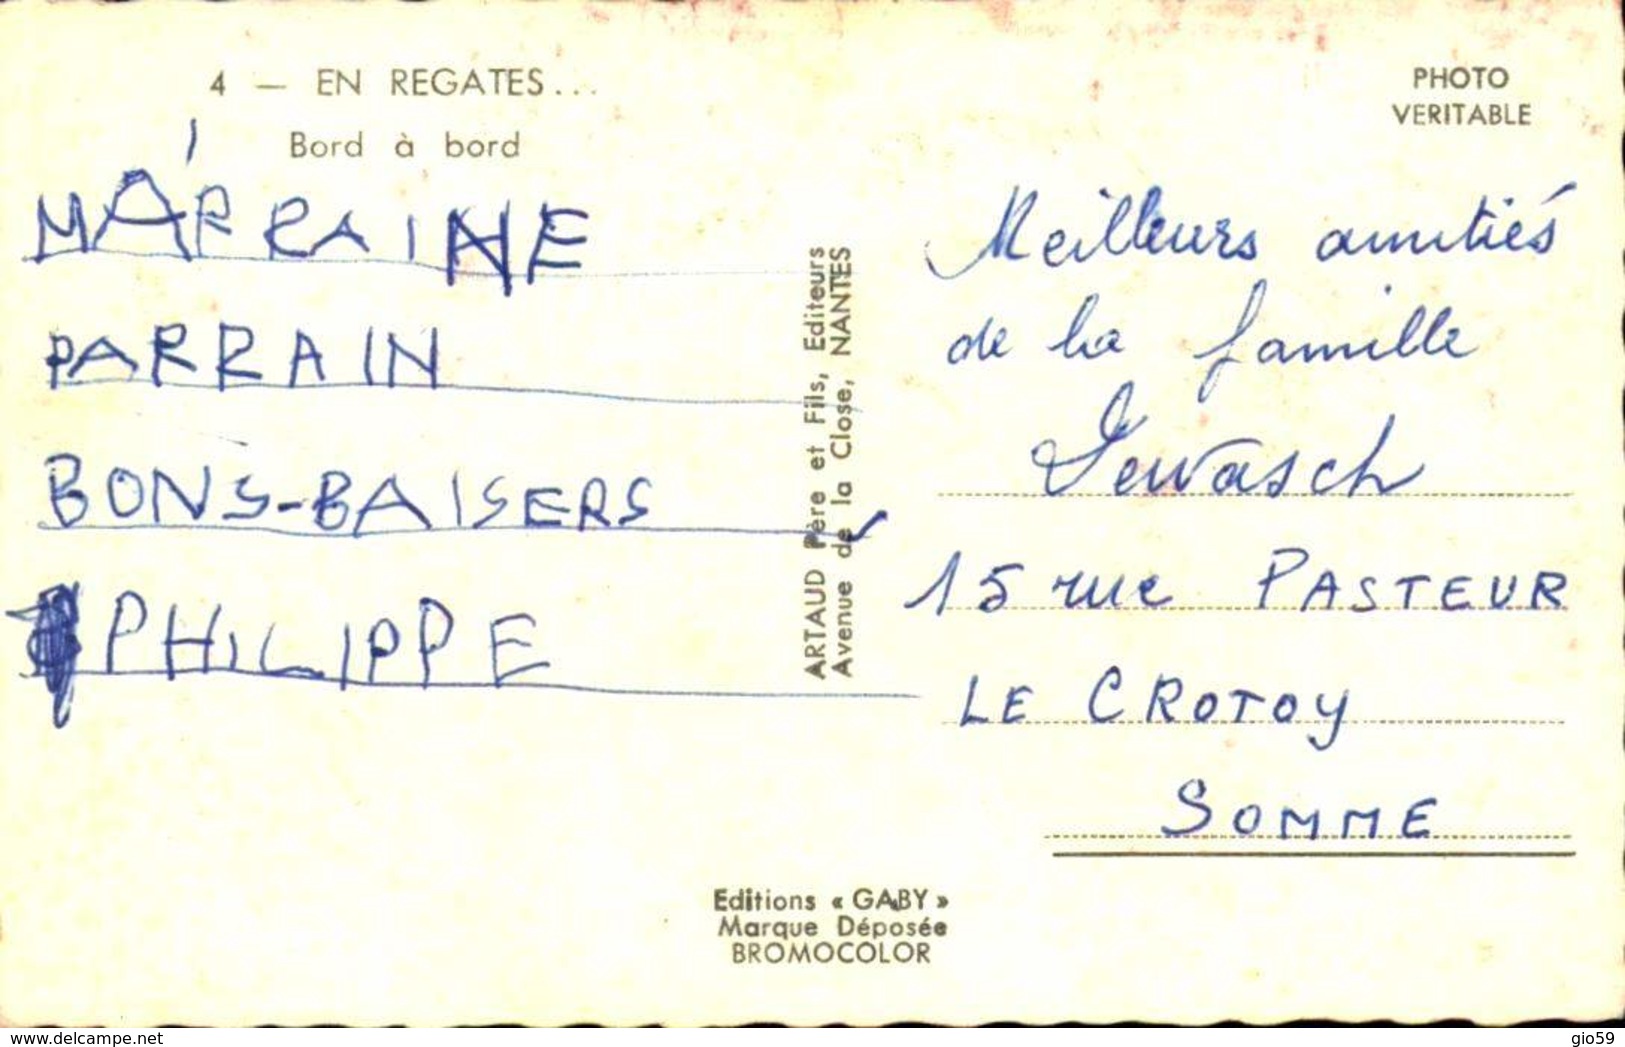 4 — EN REGATES...
Bord à bord
MARRAINE
PARRAIN
BONS-BAISERS
PHILIPPE
ARTAUD Père et Fils, Editeurs
Avenue de la Close, NANTES
PHOTO
VERITABLE
Meilleurs amitiés
de la famille
15 rue PASTEUR
LE CROTOY
SOMME
Editions « GABY »
Marque Déposée
BROMOCOLOR
www.delcampe.net
gio59